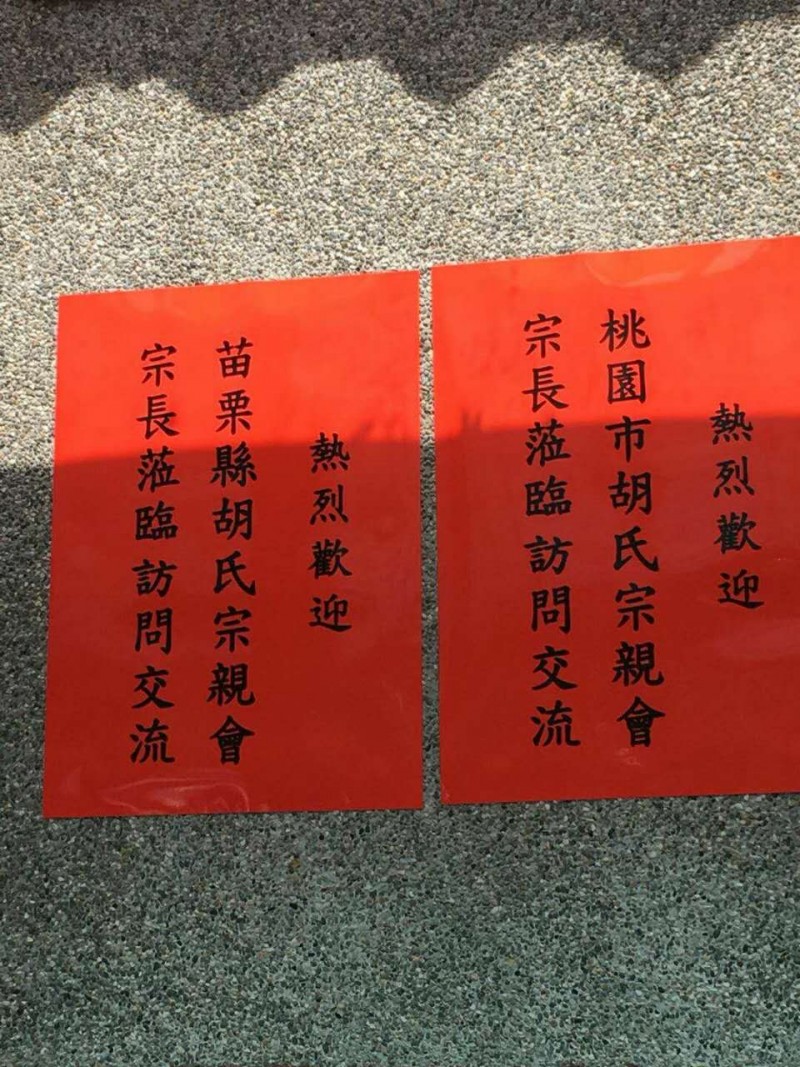 熱烈歡迎
桃園市胡氏宗親會
宗長蒞臨訪問交流
熱烈歡迎
苗栗縣胡氏宗親會
宗長蒞臨訪問交流